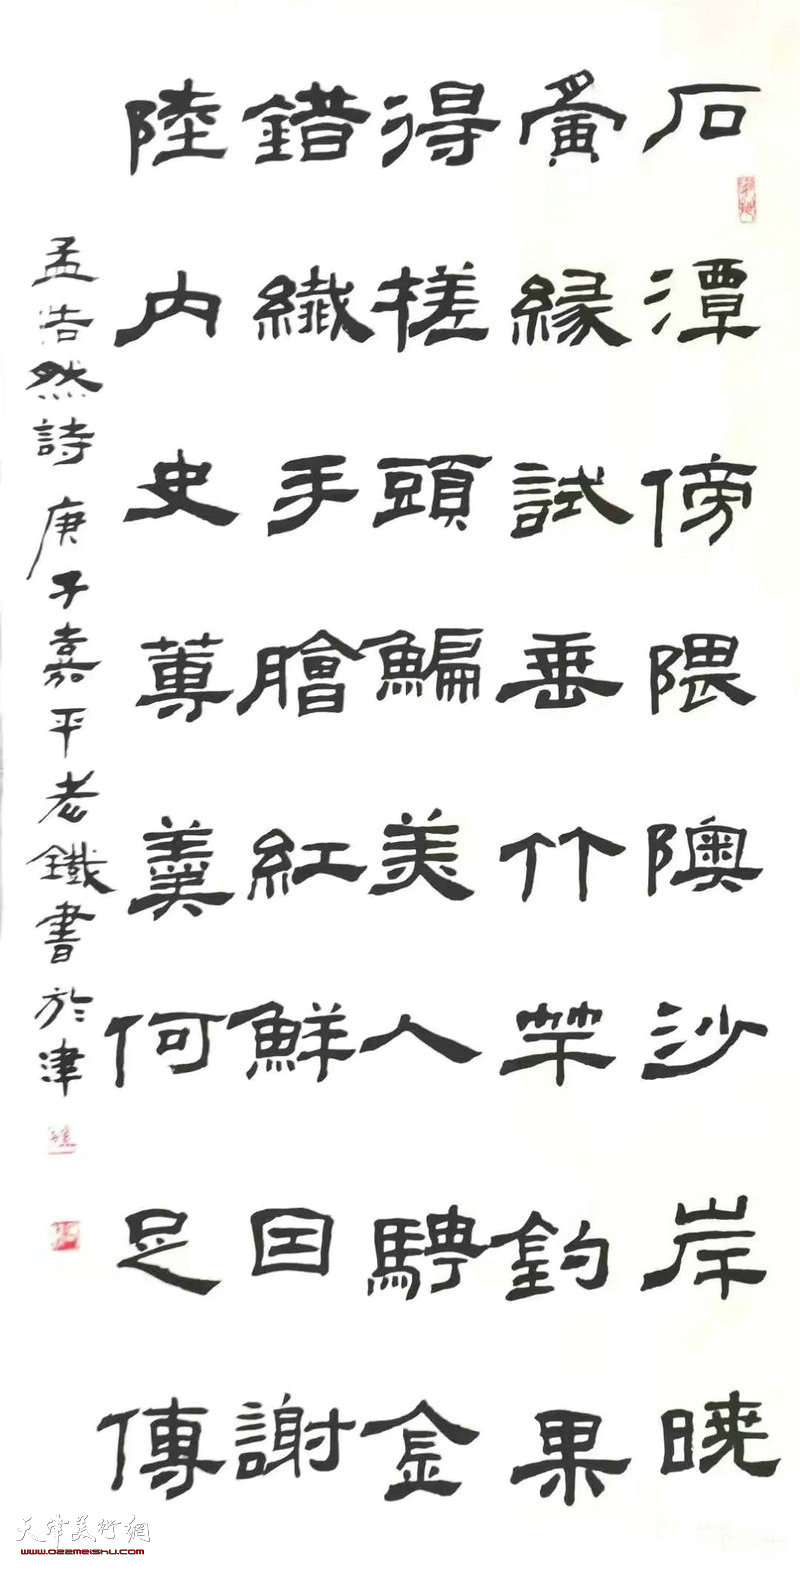 石潭傍隈隩沙岸曉
夤緣試垂竹竿釣果
得槎頭鯿美人騁金
錯纖手膾紅鮮因謝
陸内史蓴羹何足傳
孟浩然詩 庚子嘉平老鐵書於津
天津美術網
www.022meishu.com